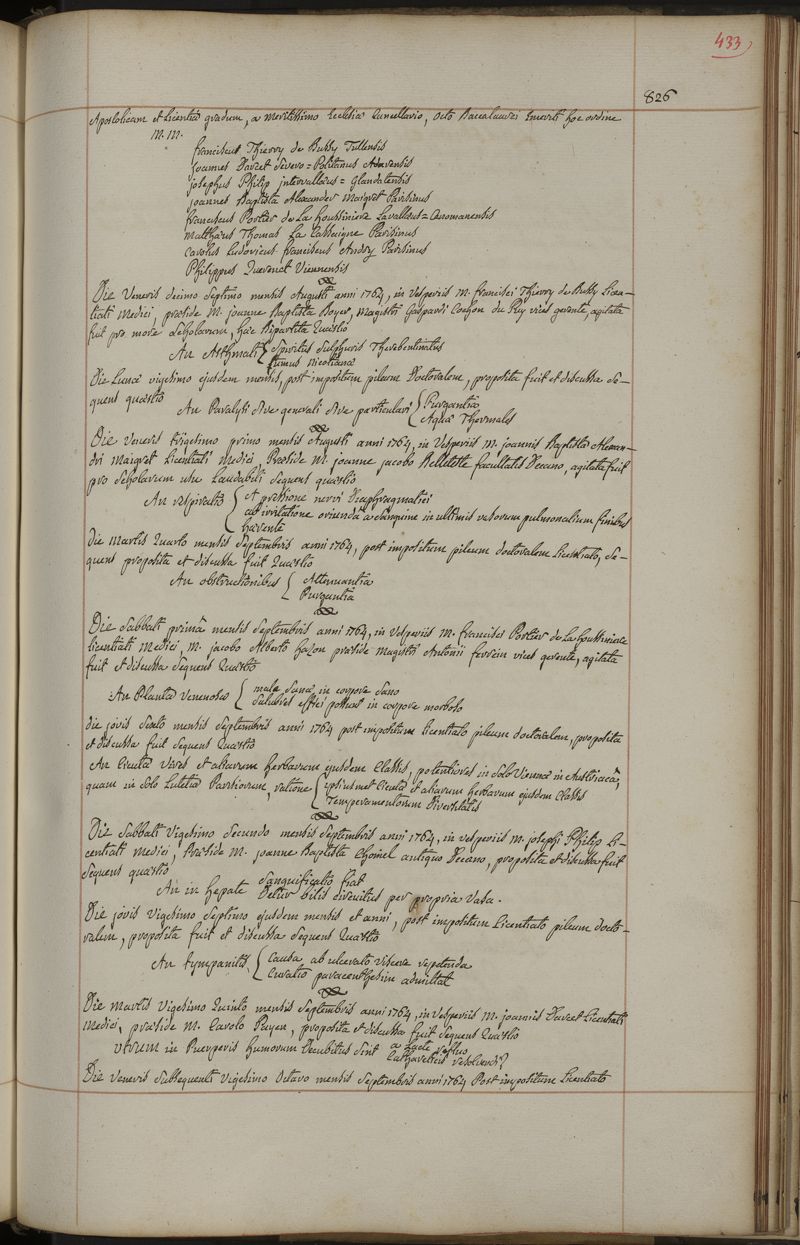 433
826
Apostolicam et Licentiæ gradum, a meritissimo Ecclesiæ Cancellario, octo Baccalaurei Emeriti hoc ordine
M.M.
franciscus Thierry de Bussy Tullensis
joannes Darcet Severo=Politanus Adurensis
josephus Philip intervallæus=Glandatensis
joannes Baptista Alexander Maigret Parisinus
franciscus Portier de La houssiniere Lavallæus=Cenomanensis
Matthæus Thomas La Cassaigne Parisinus
Carolus Ludovicus franciscus Andry Parisinus
Philippus Quevenet Viennensis
Die Veneris decimo Septimo mensis Augusti anni 1764, in Vesperiis M. francisci Thierry de Bussy Licen=
tiati Medici, præside M. joanne Baptista Boyer, Magistri Gaspardi Cochon du Puy vices gerente, agitata
fuit pro more Scholarum, hæc Bipartita Quæstio
An Asthmati { Spiritus Sulphuris Therebentinatus
fumus nicotianæ
Die Lunæ vigesimo ejusdem mensis, post impositum pileum Doctoralem, proposita fuit et discussa Se=
quens quæstio
An Paralysi sive generali sive particulari { Purgantia
Aquæ Thermales
Die Veneris trigesimo primo mensis Augusti anni 1764, in Vesperiis M. joannis Baptistæ Alexan=
dri Maigret Licentiati Medici Præside M. joanne jacobo Belletete facultatis Decano, agitata fuit
pro Scholarum usu Laudabili Sequens quæstio
An respiratio { A pressione nervi Diaphragmatici
ab irritatione oriunda a Sanguine in ultimis vasorum pulmonalium finibus
hærente
Die Martis Quarto mensis Septembris anni 1764, post impositum pileum doctoralem Licentiato, Se=
quens proposita et discussa fuit Quæstio
An obstructionibus { Attenuantia
Purgantia
Die Sabbati primâ mensis Septembris anni 1764, in Vesperiis M. francisci Portier de La houssiniere
Licentiati Medici, M. jacobo Alberto hazon præside Magistri Antonii ferrein vices gerente, agitata
fuit et discussa Sequens Quæstio
An Plantæ venenosæ { male Sanæ in corpore Sano
Salubres effici possunt in corpore morboso
die jovis Sexto mensis Septembris anni 1764 post impositum Licentiato pileum doctoralem, proposita
et discussa fuit Sequens Quæstio
An Cicutæ Vires et aliarum herbarum ejusdem Classis, potentiores in Solo Viennæ in Austriacâ,
quam in Solo Lutetiæ Parisiorum, ratione { ipsiusmet Cicutæ et aliarum herbarum ejusdem Classis
Temperamentorum Diversitatis
Die Sabbati Vigesimo Secundo mensis Septembris anni 1764, in vesperiis M. josephi Philip Li=
centiati Medici, Præside M. joanne Baptista Chomel antiquo Decano, proposita et discussa fuit
Sequens quæstio
An in hepate Sanguificatio fiat
Detur bilis circuitus per propria Vasa.
Die jovis Vigesimo Septimo ejusdem mensis et anni, post impositum Licentiato pileum docto=
ralem, proposita fuit et discussa Sequens Quæstio
An tympanitis { Causa ab ulcerato viscere repetenda
Curatio paracenthesim admittat
Die Martis Vigesimo Quinto mensis Septembris anni 1764, in Vesperiis M. joannis Darcet Licentiati
Medici, præside M. Carolo Payen, proposita et discussa fuit Sequens Quæstio
Utrum in Puerperis humorum Decubitus Sint a Lacte refluo
Catharticis resolvendi?
Die Veneris Subsequenti Vigesimo Octavo mensis Septembris anni 1764 Post impositum Licentiato